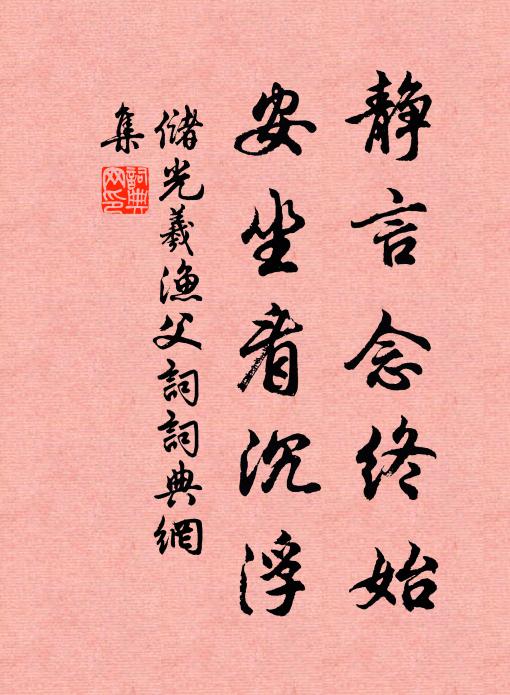 静言念终始
安坐看沉浮
储光羲渔父词詞典網
集
詞典網印